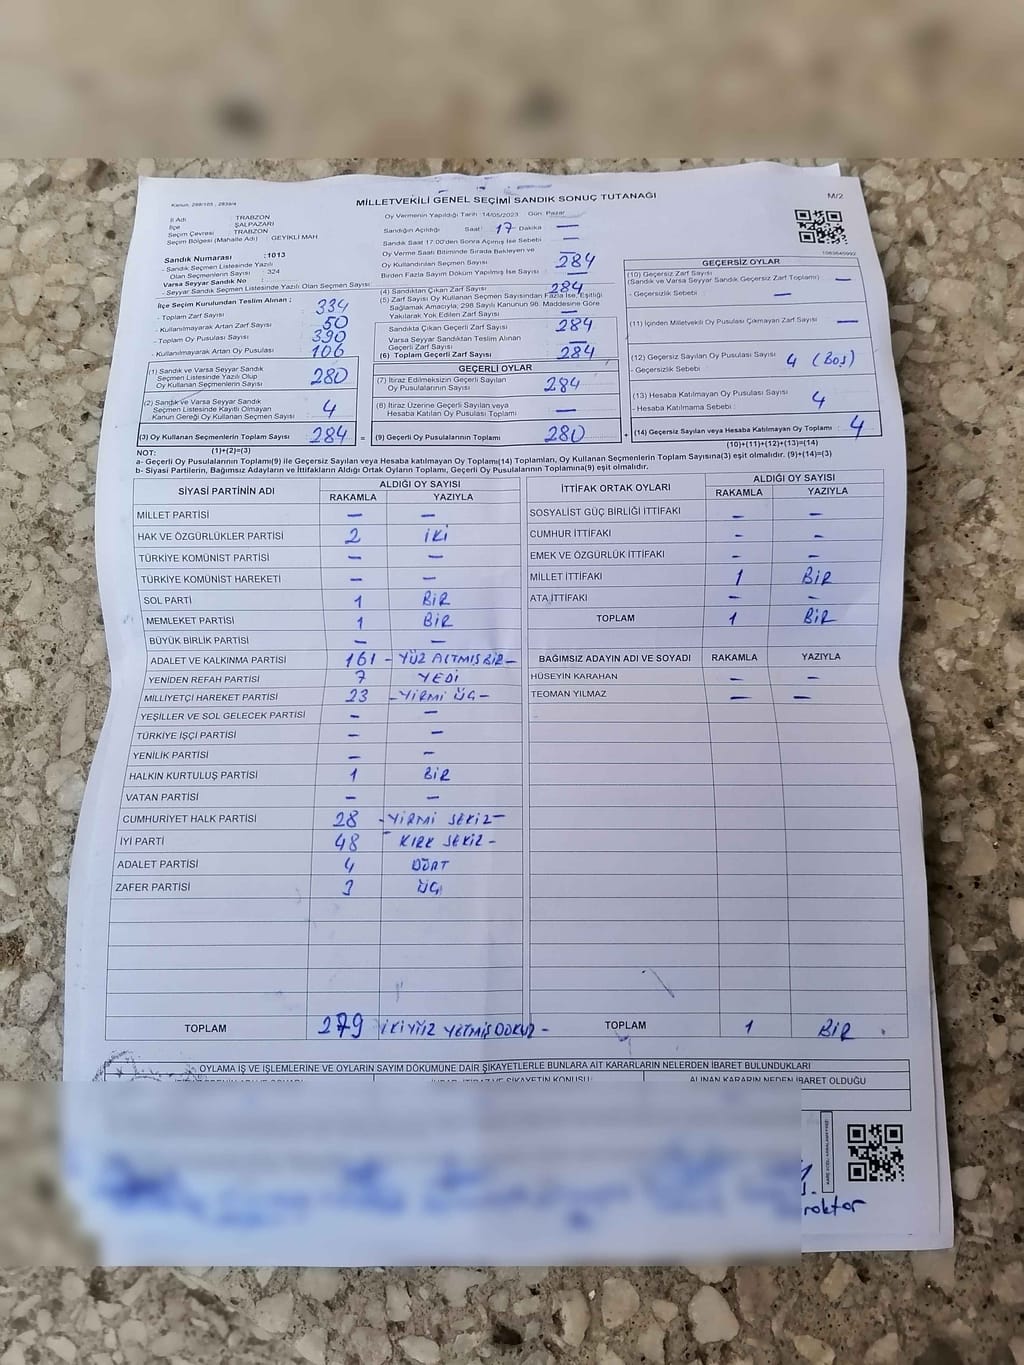 Kanun, 298/105, 2839/4
MİLLETVEKİLİ GENEL SEÇİMİ SANDIK SONUÇ TUTANAĞI
M/2
İl Adı : TRABZON
İlçe : ŞALPAZARI
Seçim Çevresi : TRABZON
Seçim Bölgesi (Mahalle Adı) : GEYİKLİ MAH
Sandık Numarası :1013
- Sandık Seçmen Listesinde Yazılı
Olan Seçmenlerin Sayısı : 324
Varsa Seyyar Sandık No :
- Seyyar Sandık Seçmen Listesinde Yazılı Olan Seçmen Sayısı:
İlçe Seçim Kurulundan Teslim Alınan ;
- Toplam Zarf Sayısı : 334
- Kullanılmayarak Artan Zarf Sayısı : 50
- Toplam Oy Pusulası Sayısı : 390
- Kullanılmayarak Artan Oy Pusulası : 106
(1) Sandık ve Varsa Seyyar Sandık
Seçmen Listesinde Yazılı Olup
Oy Kullanan Seçmenlerin Sayısı 280
(2) Sandık ve Varsa Seyyar Sandık
Seçmen Listesinde Kayıtlı Olmayan
Kanun Gereği Oy Kullanan Seçmen Sayısı 4
(3) Oy Kullanan Seçmenlerin Toplam Sayısı 284 =
(1)+(2)=(3)
Oy Vermenin Yapıldığı Tarih :14/05/2023 Gün: Pazar
Sandığın Açıldığı Saat: 17 Dakika —
Sandık Saat 17:00'den Sonra Açılmış İse Sebebi —
Oy Verme Saati Bitiminde Sırada Bekleyen ve
Oy Kullandırılan Seçmen Sayısı 284
Birden Fazla Sayım Döküm Yapılmış İse Sayısı : —
(4) Sandıktan Çıkan Zarf Sayısı 284
(5) Zarf Sayısı Oy Kullanan Seçmen Sayısından Fazla İse, Eşitliği
Sağlamak Amacıyla, 298 Sayılı Kanunun 98. Maddesine Göre
Yakılarak Yok Edilen Zarf Sayısı : —
Sandıkta Çıkan Geçerli Zarf Sayısı 284
Varsa Seyyar Sandıktan Teslim Alınan
Geçerli Zarf Sayısı : —
(6) Toplam Geçerli Zarf Sayısı 284
GEÇERLİ OYLAR
(7) İtiraz Edilmeksizin Geçerli Sayılan
Oy Pusulalarının Sayısı 284
(8) İtiraz Üzerine Geçerli Sayılan veya
Hesaba Katılan Oy Pusulası Toplamı —
(9) Geçerli Oy Pusulalarının Toplamı 280 +
GEÇERSİZ OYLAR
(10) Geçersiz Zarf Sayısı
(Sandık ve Varsa Seyyar Sandık Geçersiz Zarf Toplamı) : —
- Geçersizlik Sebebi : —
(11) İçinden Milletvekili Oy Pusulası Çıkmayan Zarf Sayısı —
(12) Geçersiz Sayılan Oy Pusulası Sayısı 4 (Boş)
- Geçersizlik Sebebi :
(13) Hesaba Katılmayan Oy Pusulası Sayısı 4
- Hesaba Katılmama Sebebi :
(14) Geçersiz Sayılan veya Hesaba Katılmayan Oy Toplamı : 4
(10)+(11)+(12)+(13)=(14)
NOT:
a- Geçerli Oy Pusulalarının Toplamı(9) ile Geçersiz Sayılan veya Hesaba katılmayan Oy Toplamı(14) Toplamları, Oy Kullanan Seçmenlerin Toplam Sayısına(3) eşit olmalıdır. (9)+(14)=(3)
b- Siyasi Partilerin, Bağımsız Adayların ve İttifakların Aldığı Ortak Oyların Toplamı, Geçerli Oy Pusulalarının Toplamına(9) eşit olmalıdır.
SİYASİ PARTİNİN ADI ALDIĞI OY SAYISI
RAKAMLA YAZIYLA
MİLLET PARTİSİ — —
HAK VE ÖZGÜRLÜKLER PARTİSİ 2 İKİ
TÜRKİYE KOMÜNİST PARTİSİ — —
TÜRKİYE KOMÜNİST HAREKETİ — —
SOL PARTİ 1 BİR
MEMLEKET PARTİSİ 1 BİR
BÜYÜK BİRLİK PARTİSİ — —
ADALET VE KALKINMA PARTİSİ 161 - YÜZ ALTMIŞ BİR -
YENİDEN REFAH PARTİSİ 7 YEDİ
MİLLİYETÇİ HAREKET PARTİSİ 23 - YİRMİ ÜÇ -
YEŞİLLER VE SOL GELECEK PARTİSİ — —
TÜRKİYE İŞÇİ PARTİSİ — —
YENİLİK PARTİSİ — —
HALKIN KURTULUŞ PARTİSİ 1 BİR
VATAN PARTİSİ — —
CUMHURİYET HALK PARTİSİ 28 - YİRMİ SEKİZ -
İYİ PARTİ 48 - KIRK SEKİZ -
ADALET PARTİSİ 4 DÖRT
ZAFER PARTİSİ 3 ÜÇ
TOPLAM 279 İKİYÜZ YETMİŞ DOKUZ -
İTTİFAK ORTAK OYLARI ALDIĞI OY SAYISI
RAKAMLA YAZIYLA
SOSYALİST GÜÇ BİRLİĞİ İTTİFAKI — —
CUMHUR İTTİFAKI — —
EMEK VE ÖZGÜRLÜK İTTİFAKI — —
MİLLET İTTİFAKI 1 BİR
ATA İTTİFAKI — —
TOPLAM 1 BİR
BAĞIMSIZ ADAYIN ADI VE SOYADI RAKAMLA YAZIYLA
HÜSEYİN KARAHAN — —
TEOMAN YILMAZ — —
TOPLAM 1 BİR
OYLAMA İŞ VE İŞLEMLERİNE VE OYLARIN SAYIM DÖKÜMÜNE DAİR ŞİKAYETLERLE BUNLARA AİT KARARLARIN NELERDEN İBARET BULUNDUKLARI
ALINAN KARARIN NEDEN İBARET OLDUĞU